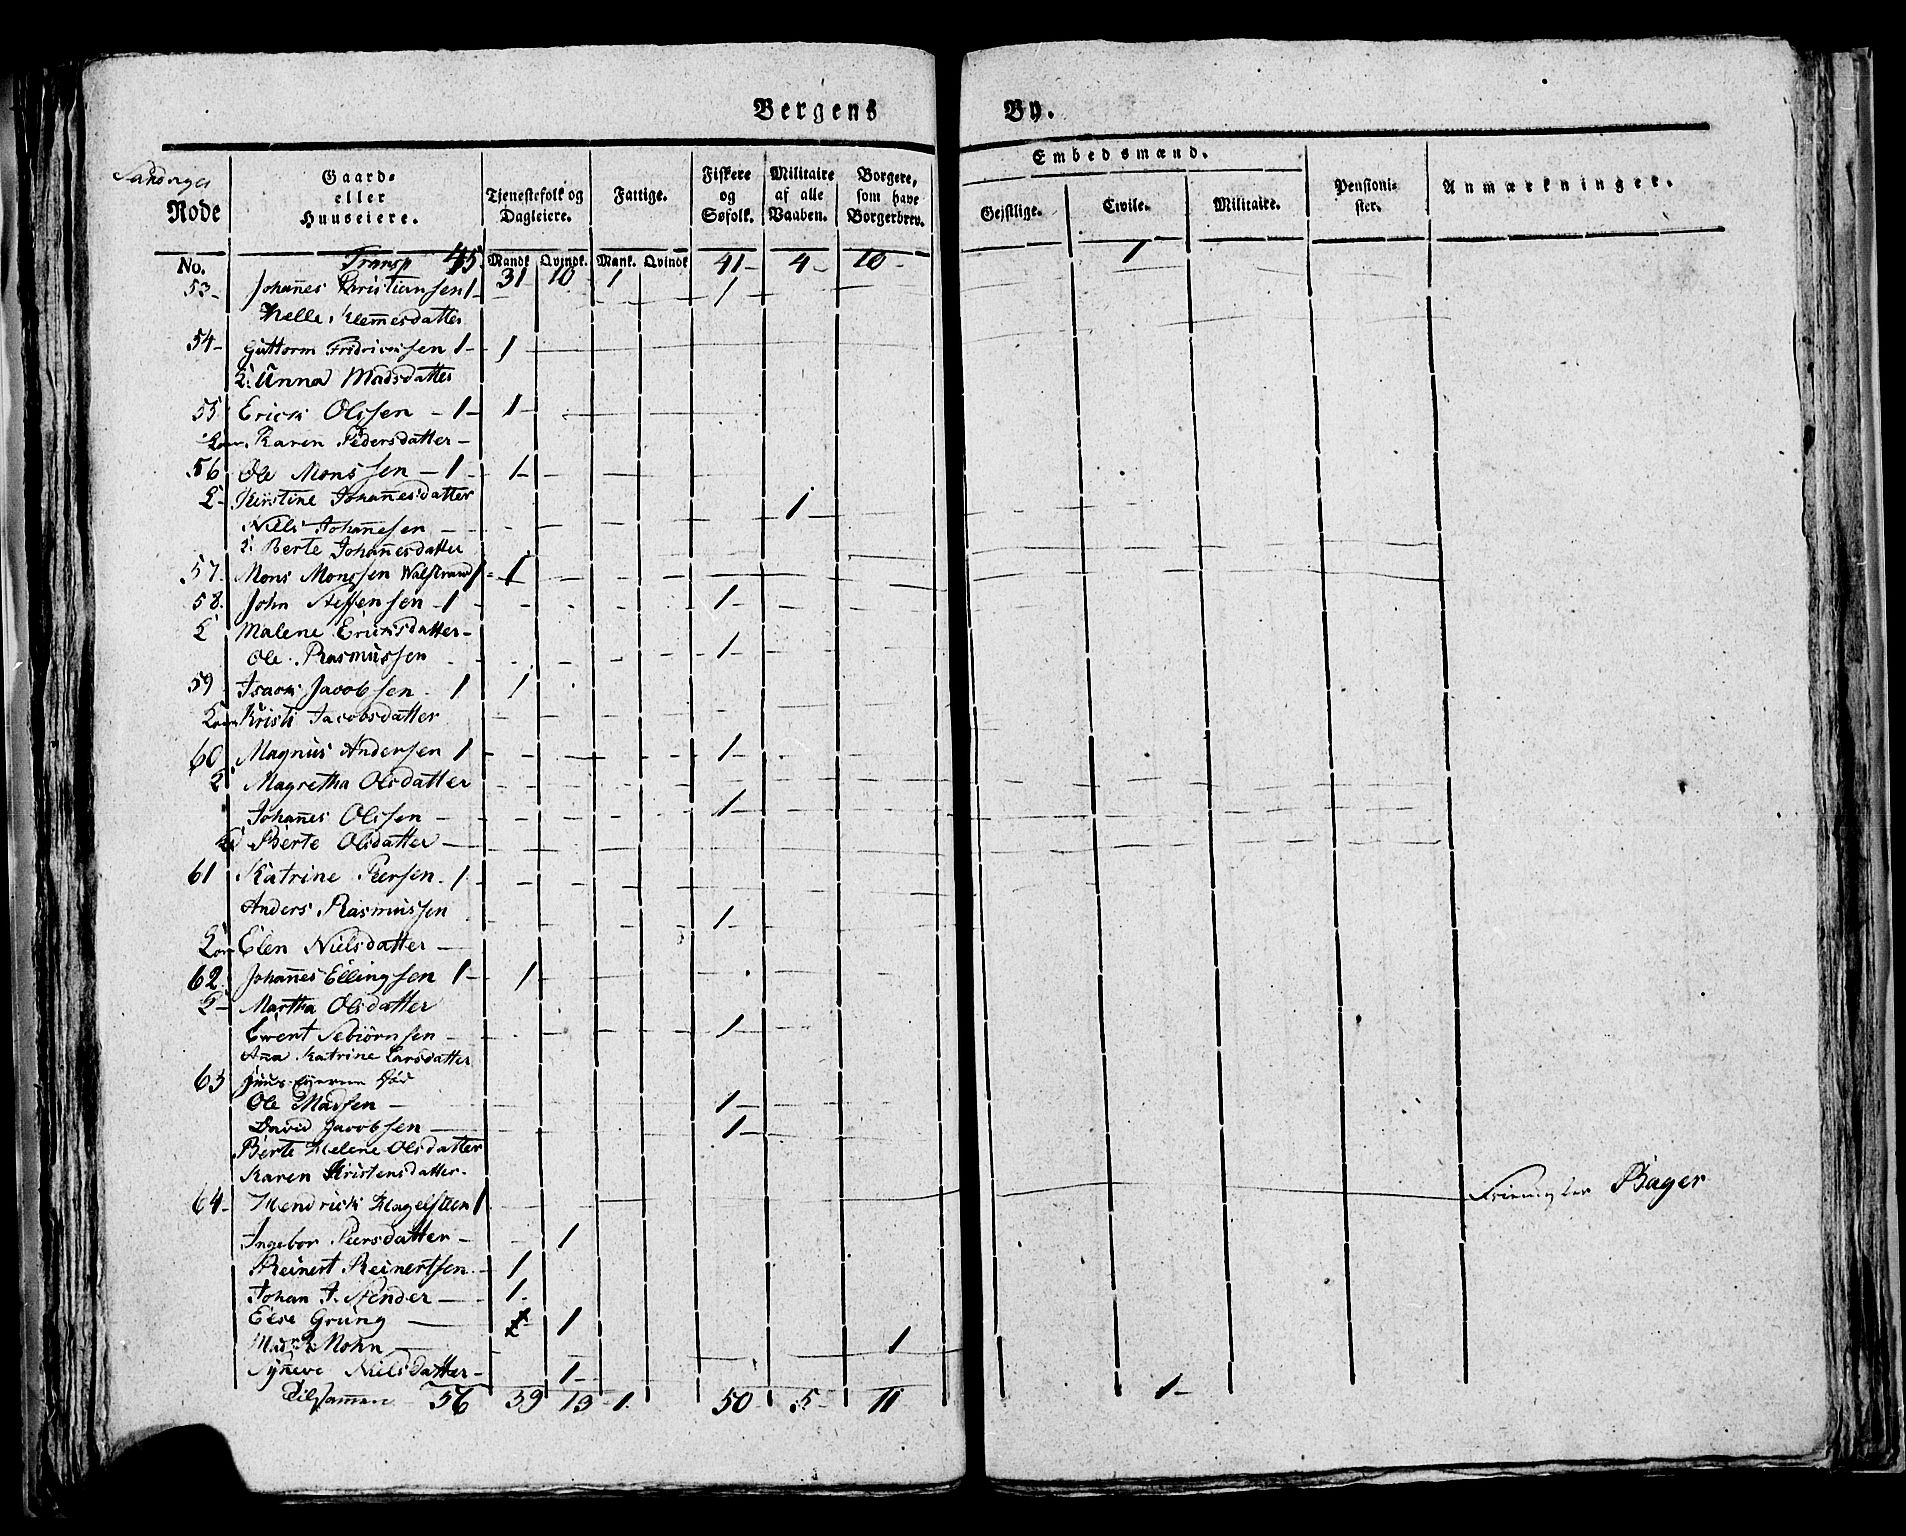 Bergens By.
Rode
Gaard- eller Huuseiere.
Tjenestefolk og Dagleiere.
Fattige.
Fiskere og Søfolk.
Militaire af alle Vaaben.
Borgere, som have Borgerbrev.
Embedsmænd.
Gejstlige.
Civile.
Militaire.
Pensionister.
Anmærkninger.
No. Transp 45 Mandk. Qvindk. Mank. Qvindk 41 - 4 - 10 - 1
31 10 1
53 - Johañes Christiansen 1 - 1
Nelle Klemesdatter
54 - Guttorm Fredricksen 1 - 1
Anna Madsdatter
55 Erick Olssen - 1 - 1 -
Karen Pedersdatter -
56 Ole Monssen - 1 - 1 -
Kirstine Johañesdatter
Niels Johañesen - 1
Berte Johañesdatter
57 Mons Monssen 1 - 1
58. John Steffensen - 1 - 1 -
Malene Ericksdatter -
Ole Rasmussen 1 -
59 Isack Jacobsen 1 1
Kristi Jacobsdatter
60 Magnus Andersen 1 - 1 -
Magretha Olsdatter
Johañes Olssen - 1 -
Berte Olsdatter -
61 Katrine Peersen 1 -
Anders Rasmussen 1 -
Elen Nielsdatter -
62 Johañes Ellingsen 1 - 1
Martha Olsdatter
Ewent Sebiørnsen - 1 -
Aña Katrine Larsdatter
63 Huus Eyeren Død
Ole Madsen - 1 -
David Jacobsen - 1 -
Berte Helene Olsdatter
Karen Kristensdatter -
64 - Hendrick Hagelsteen 1 Bager
Ingebor Peersdatter - 1
Reinert Reinertsen - 1
Johan J. Stender - 1 -
Else Grung - 1
Mohn 1
Syñeve Nielsdatter - 1 -
Tilsamen 56 39 13 1 50 5 - 11 1 -